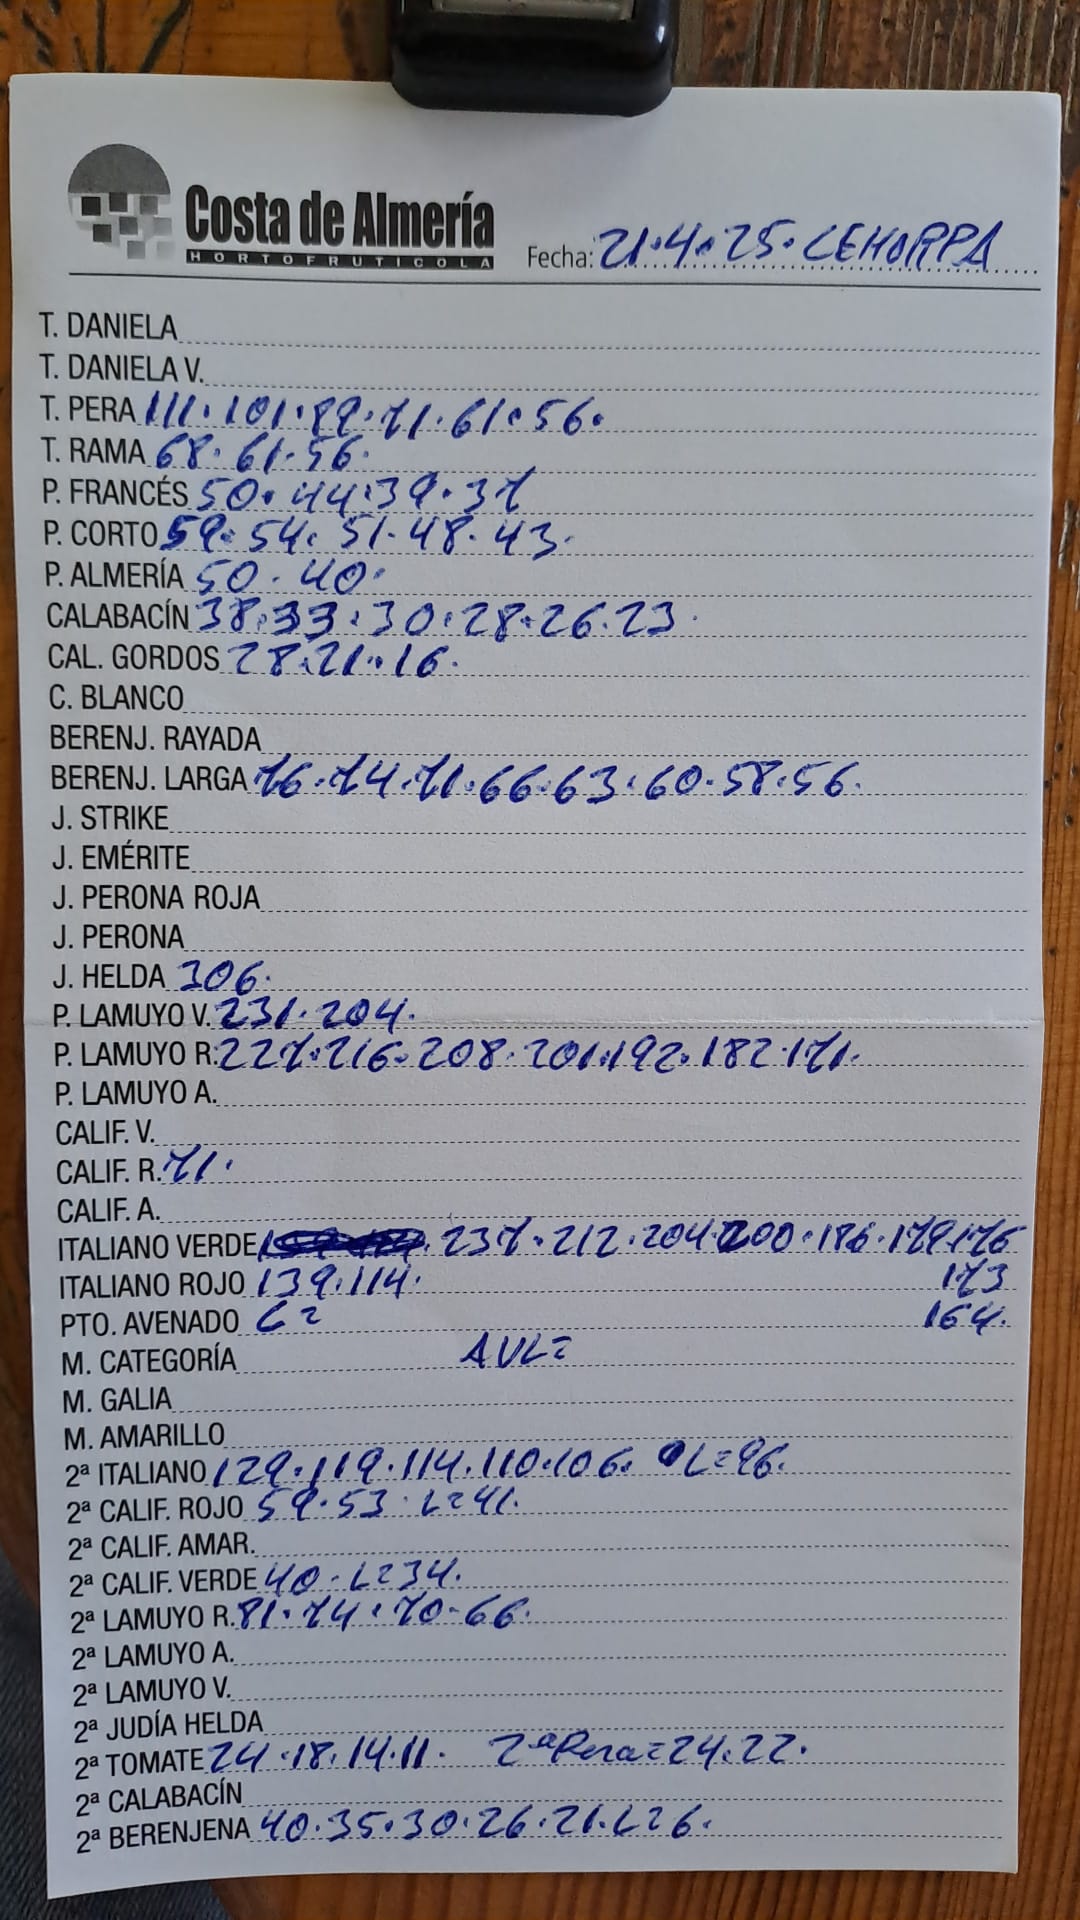 Costa de Almería
HORTOFRUTICOLA
Fecha: 21.4.25. CEHORPA
T. DANIELA
T. DANIELA V.
T. PERA 111. 101. 89. 71. 61. 56.
T. RAMA 68. 61. 56.
P. FRANCÉS 50. 44. 39. 37
P. CORTO 59. 54. 51. 48. 43.
P. ALMERÍA 50. 40.
CALABACÍN 38. 33. 30. 28. 26. 23.
CAL. GORDOS 28. 21. 16.
C. BLANCO
BERENJ. RAYADA
BERENJ. LARGA 76. 74. 71. 66. 63. 60. 58. 56.
J. STRIKE
J. EMÉRITE
J. PERONA ROJA
J. PERONA
J. HELDA 306.
P. LAMUYO V. 231. 204.
P. LAMUYO R. 227. 216. 208. 201. 192. 182. 171.
P. LAMUYO A.
CALIF. V.
CALIF. R. 71.
CALIF. A.
ITALIANO VERDE 237. 212. 204. 200. 186. 179. 176
ITALIANO ROJO 139. 114. 173
PTO. AVENADO 164.
M. CATEGORÍA
M. GALIA
M. AMARILLO
2ª ITALIANO 129. 119. 114. 110. 106. L=96.
2ª CALIF. ROJO 59. 53. L=41.
2ª CALIF. AMAR.
2ª CALIF. VERDE 40. L=34.
2ª LAMUYO R. 81. 74. 70. 66.
2ª LAMUYO A.
2ª LAMUYO V.
2ª JUDÍA HELDA
2ª TOMATE 24. 18. 14. 11. 2ª Pera=24. 22.
2ª CALABACÍN
2ª BERENJENA 40. 35. 30. 26. 21. L=6.